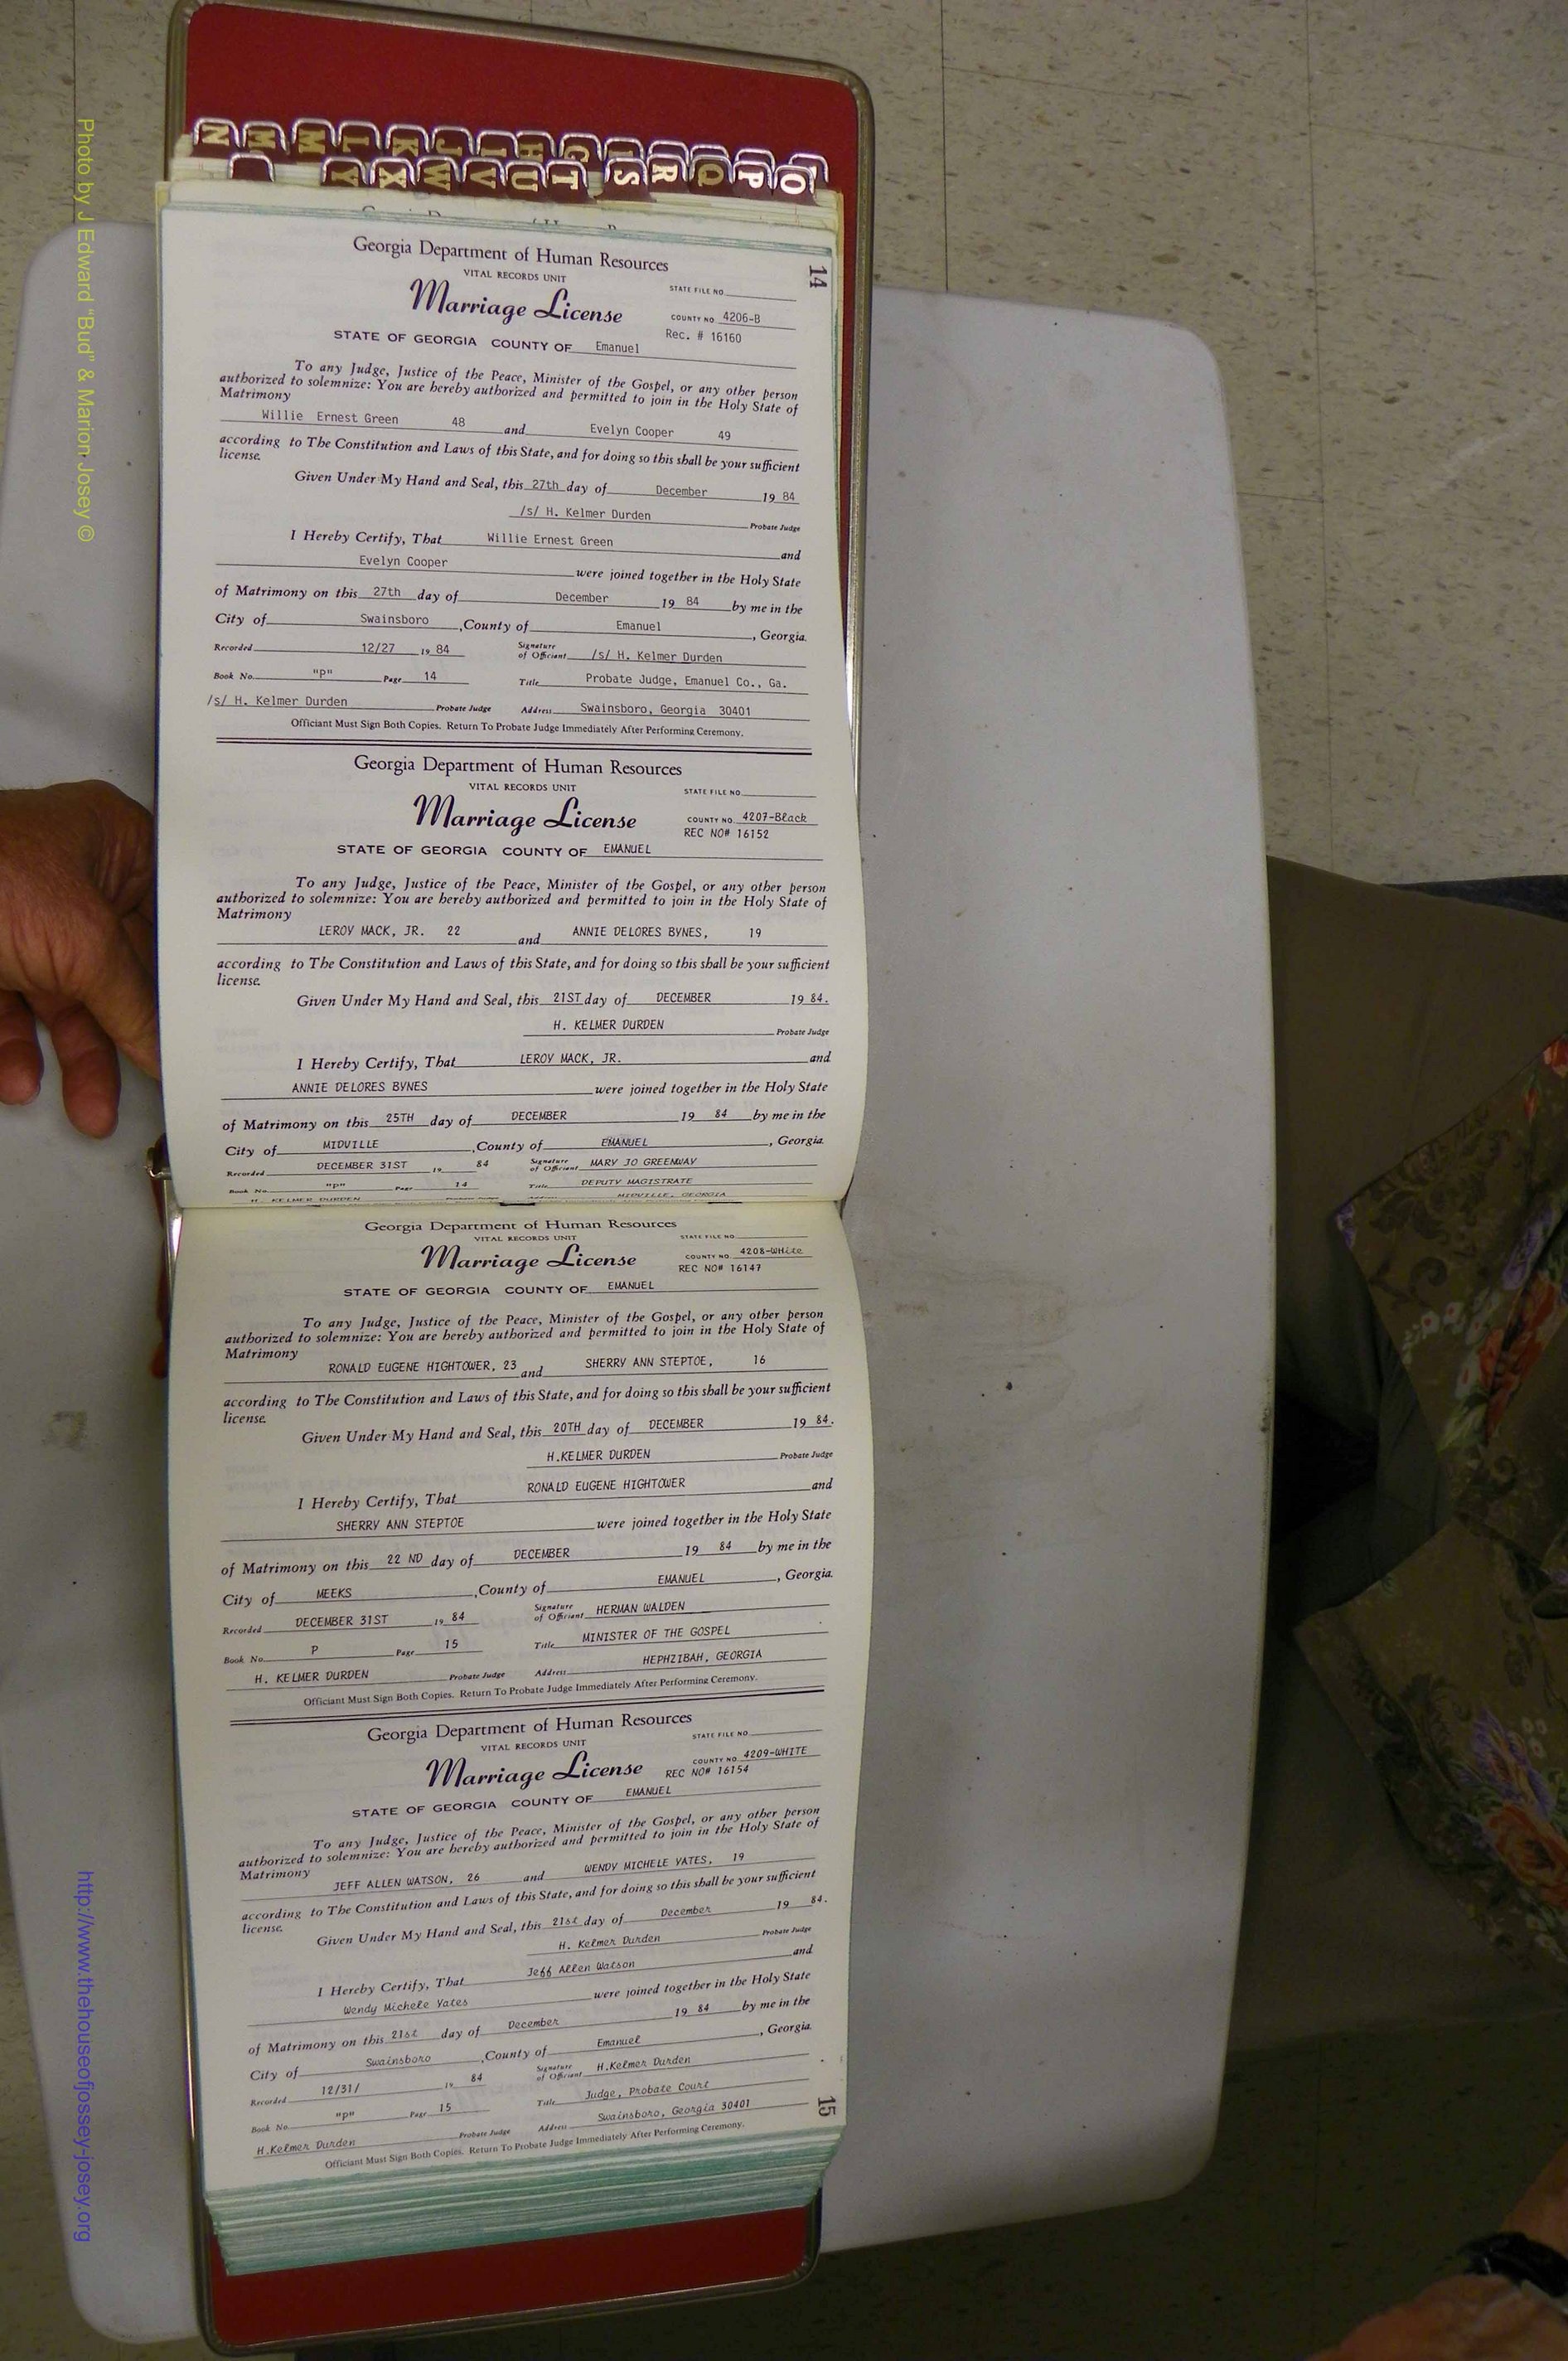 N M M L K J I H G
Y X W V U T S R Q P O
14
Georgia Department of Human Resources
VITAL RECORDS UNIT
STATE FILE NO.
Marriage License
COUNTY NO. 4206-B
Rec. # 16160
STATE OF GEORGIA COUNTY OF Emanuel
To any Judge, Justice of the Peace, Minister of the Gospel, or any other person
authorized to solemnize: You are hereby authorized and permitted to join in the Holy State of
Matrimony
Willie Ernest Green 48 and Evelyn Cooper 49
according to The Constitution and Laws of this State, and for doing so this shall be your sufficient
license.
Given Under My Hand and Seal, this 27th day of December 19 84
/s/ H. Kelmer Durden Probate Judge
I Hereby Certify, That Willie Ernest Green and
Evelyn Cooper were joined together in the Holy State
of Matrimony on this 27th day of December 19 84 by me in the
City of Swainsboro, County of Emanuel, Georgia.
Recorded 12/27 19 84 Signature of Officiant /s/ H. Kelmer Durden
Book No. "P" Page 14 Title Probate Judge, Emanuel Co., Ga.
/s/ H. Kelmer Durden Probate Judge Address Swainsboro, Georgia 30401
Officiant Must Sign Both Copies. Return To Probate Judge Immediately After Performing Ceremony.
Georgia Department of Human Resources
VITAL RECORDS UNIT
STATE FILE NO.
Marriage License
COUNTY NO. 4207-Black
REC NO# 16152
STATE OF GEORGIA COUNTY OF EMANUEL
To any Judge, Justice of the Peace, Minister of the Gospel, or any other person
authorized to solemnize: You are hereby authorized and permitted to join in the Holy State of
Matrimony
LEROY MACK, JR. 22 and ANNIE DELORES BYNES, 19
according to The Constitution and Laws of this State, and for doing so this shall be your sufficient
license.
Given Under My Hand and Seal, this 21ST day of DECEMBER 19 84.
H. KELMER DURDEN Probate Judge
I Hereby Certify, That LEROY MACK, JR. and
ANNIE DELORES BYNES were joined together in the Holy State
of Matrimony on this 25TH day of DECEMBER 19 84 by me in the
City of MIDVILLE, County of EMANUEL, Georgia.
Recorded DECEMBER 31ST 19 84 Signature of Officiant MARY JO GREENWAY
Book No. "P" Page 14 Title DEPUTY MAGISTRATE
H. KELMER DURDEN Probate Judge Address MIDVILLE, GEORGIA
Georgia Department of Human Resources
VITAL RECORDS UNIT
STATE FILE NO.
Marriage License
COUNTY NO. 4208-WHite
REC NO# 16147
STATE OF GEORGIA COUNTY OF EMANUEL
To any Judge, Justice of the Peace, Minister of the Gospel, or any other person
authorized to solemnize: You are hereby authorized and permitted to join in the Holy State of
Matrimony
RONALD EUGENE HIGHTOWER, 23 and SHERRY ANN STEPTOE, 16
according to The Constitution and Laws of this State, and for doing so this shall be your sufficient
license.
Given Under My Hand and Seal, this 20TH day of DECEMBER 19 84.
H.KELMER DURDEN Probate Judge
I Hereby Certify, That RONALD EUGENE HIGHTOWER and
SHERRY ANN STEPTOE were joined together in the Holy State
of Matrimony on this 22 ND day of DECEMBER 19 84 by me in the
City of MEEKS, County of EMANUEL, Georgia.
Recorded DECEMBER 31ST 19 84 Signature of Officiant HERMAN WALDEN
Book No. P Page 15 Title MINISTER OF THE GOSPEL
H. KELMER DURDEN Probate Judge Address HEPHZIBAH, GEORGIA
Officiant Must Sign Both Copies. Return To Probate Judge Immediately After Performing Ceremony.
Georgia Department of Human Resources
VITAL RECORDS UNIT
STATE FILE NO.
Marriage License
COUNTY NO. 4209-WHITE
REC NO# 16154
STATE OF GEORGIA COUNTY OF EMANUEL
To any Judge, Justice of the Peace, Minister of the Gospel, or any other person
authorized to solemnize: You are hereby authorized and permitted to join in the Holy State of
Matrimony
JEFF ALLEN WATSON, 26 and WENDY MICHELE YATES, 19
according to The Constitution and Laws of this State, and for doing so this shall be your sufficient
license.
Given Under My Hand and Seal, this 21st day of December 19 84.
H. Kelmer Durden Probate Judge
I Hereby Certify, That Jeff Allen Watson and
Wendy Michele Yates were joined together in the Holy State
of Matrimony on this 21st day of December 19 84 by me in the
City of Swainsboro, County of Emanuel, Georgia.
Recorded 12/31/ 19 84 Signature of Officiant H.Kelmer Durden
Book No. "P" Page 15 Title Judge, Probate Court
H.Kelmer Durden Probate Judge Address Swainsboro, Georgia 30401
Officiant Must Sign Both Copies. Return To Probate Judge Immediately After Performing Ceremony.
15
Photo by J Edward "Bud" & Marion Josey ©
http://www.thehouseofjossey-josey.org